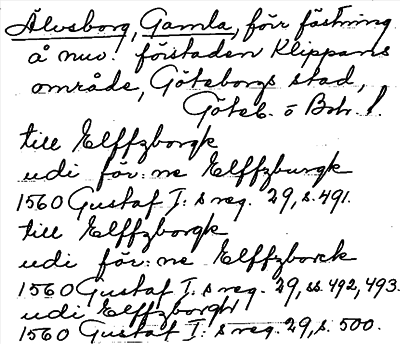 Älvsborg, Gamla, förr fästning
å nuv. förstaden Klippans
område, Göteborgs stad,
Göteb. o Boh. l.
till Elffzborgk
udi för:ne Elffzburgk
1560 Gustaf I:s reg. 29, s. 491.
till Elffzborgk
udi för:ne Elffzborck
1560 Gustaf I:s reg. 29, ss. 492, 493.
udi Elffzborgh
1560 Gustaf I:s reg. 29, s. 500.